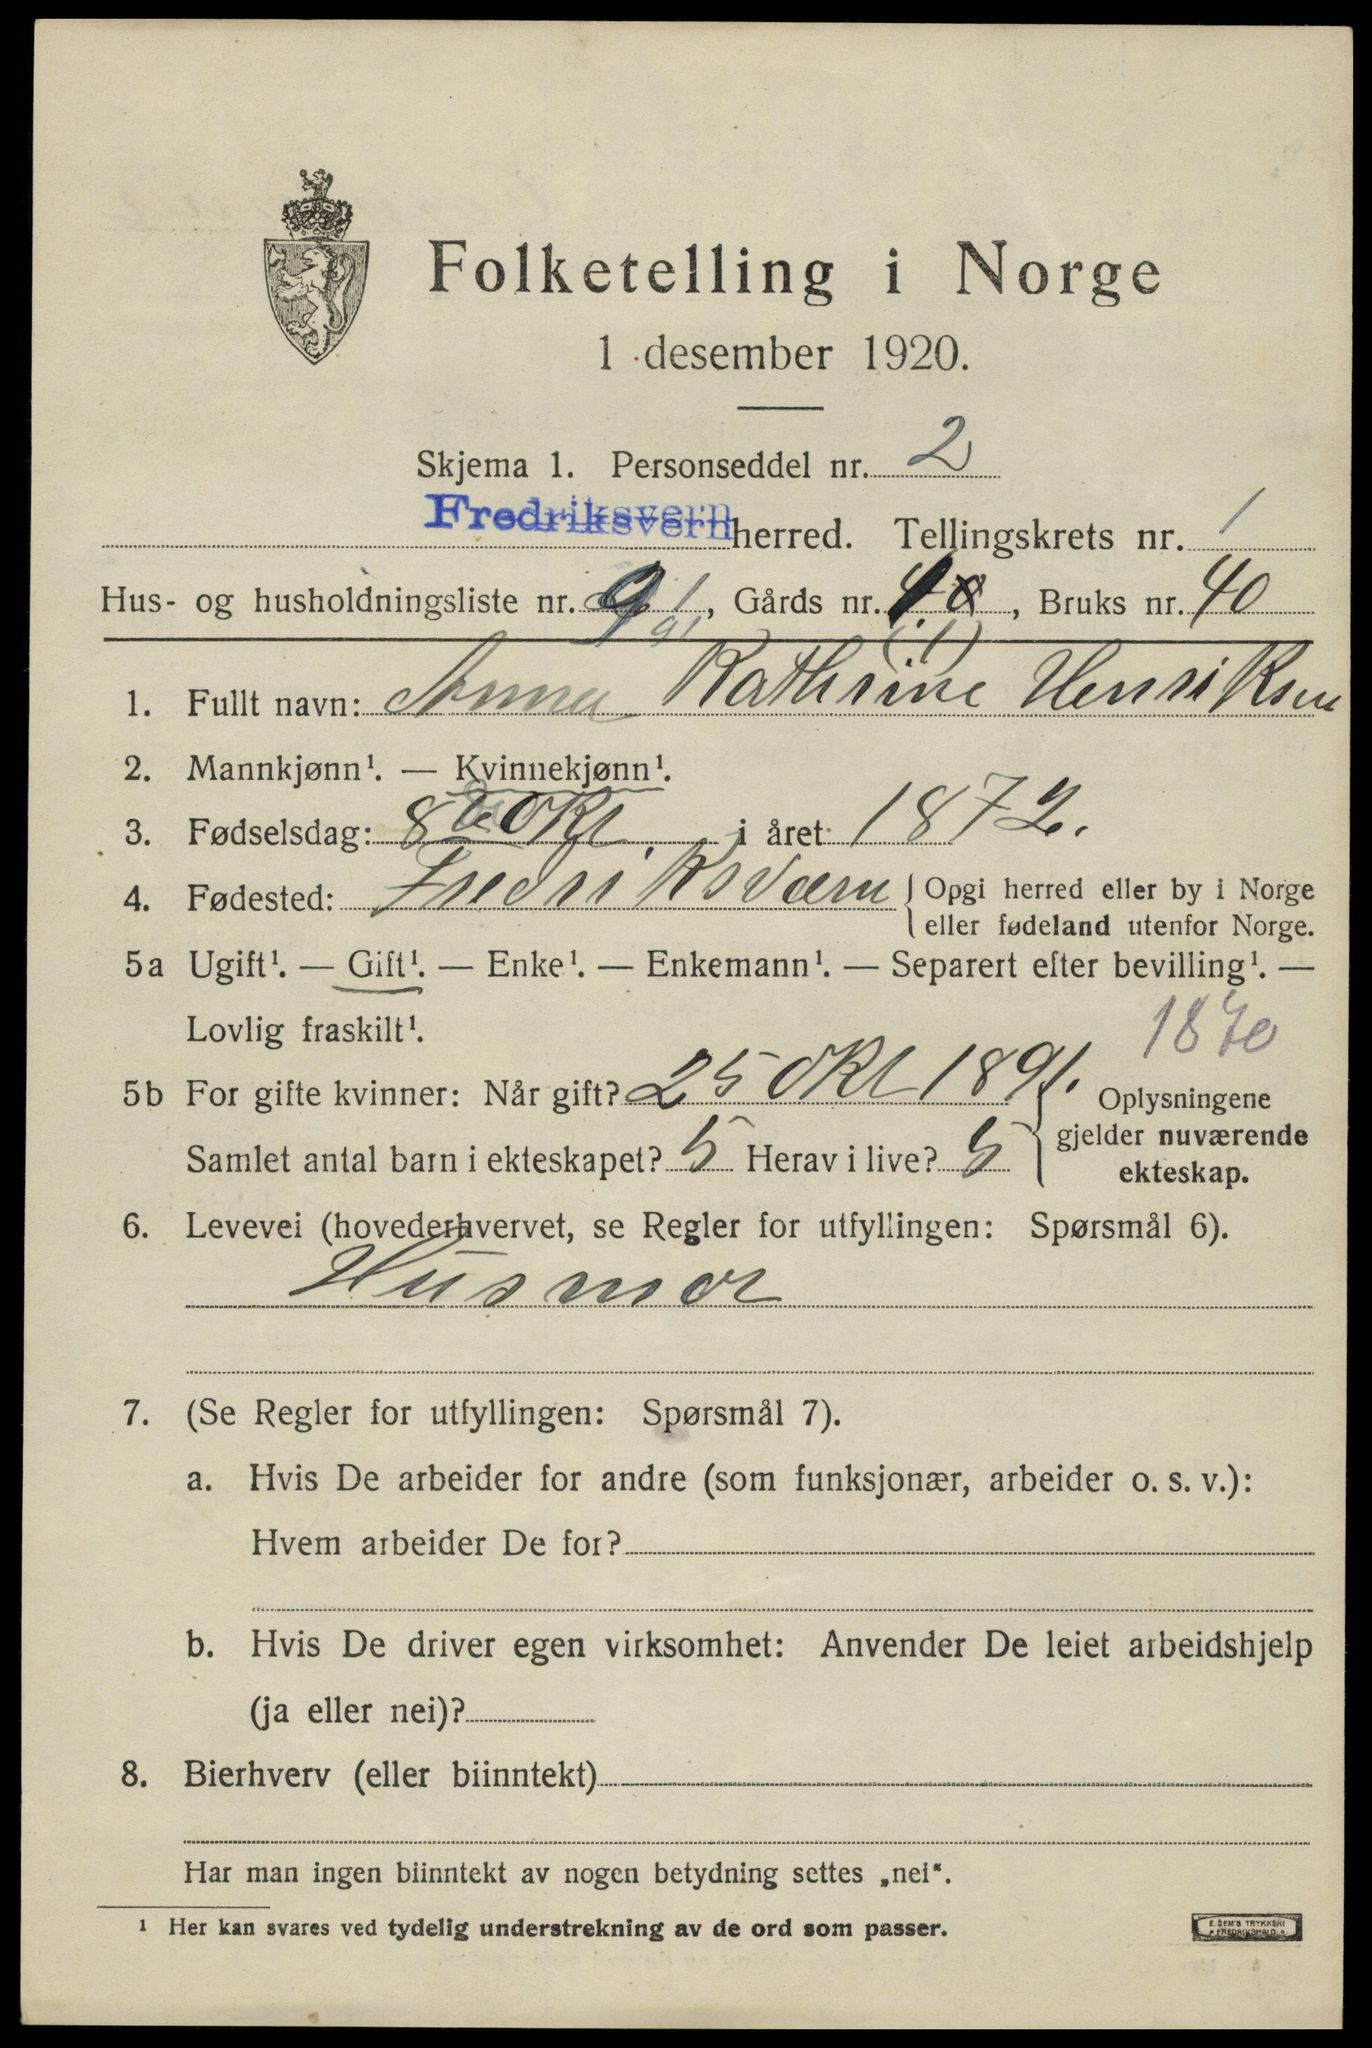 Folketelling i Norge
1 desember 1920.
Skjema 1. Personseddel nr. 2
Fredriksvern herred. Tellingskrets nr. 1
Hus- og husholdningsliste nr. 91, Gårds nr. 40, Bruks nr. 40
91 (1)
1. Fullt navn: Anna Kathrine Henriksen
2. Mannkjønn¹. — Kvinnekjønn¹.
3. Fødselsdag: 8 Okt. i året 1872.
4. Fødested: Fredriksværn { Opgi herred eller by i Norge
eller fødeland utenfor Norge.
5a Ugift¹. — Gift¹. — Enke¹. — Enkemann¹. — Separert efter bevilling¹. —
Lovlig fraskilt¹.
5b For gifte kvinner: Når gift? 25 Okt 1891. } Oplysningene
gjelder nuværende
Samlet antal barn i ekteskapet? 5 Herav i live? 5
ekteskap.
6. Levevei (hovederhvervet, se Regler for utfyllingen: Spørsmål 6).
Husmor
7. (Se Regler for utfyllingen: Spørsmål 7).
a. Hvis De arbeider for andre (som funksjonær, arbeider o. s. v.):
Hvem arbeider De for?
b. Hvis De driver egen virksomhet: Anvender De leiet arbeidshjelp
(ja eller nei)?
8. Bierhverv (eller biinntekt)
Har man ingen biinntekt av nogen betydning settes „nei“.
¹ Her kan svares ved tydelig understrekning av de ord som passer.
E. SEM'S TRYKKERI
FREDRIKSHALD